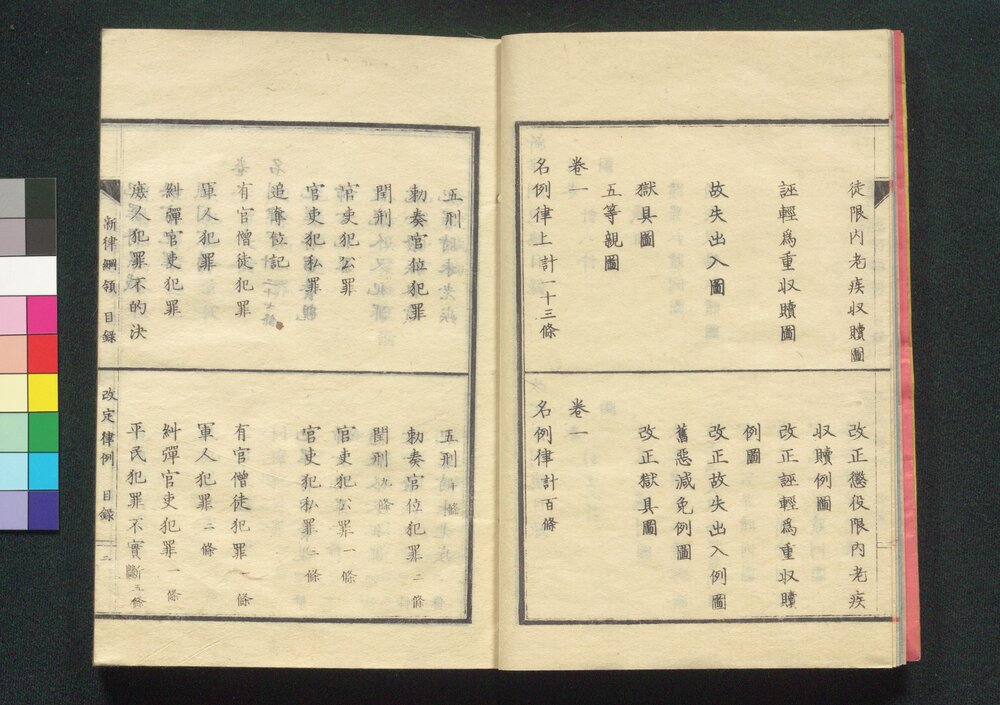 徒限內老疾収贖圖
誣輕爲重収贖圖
故失出入圖
獄具圖
五等親圖
卷一
名例律上計一十三條
改正懲役限內老疾
収贖例圖
改正誣輕爲重収贖
例圖
改正故失出入例圖
舊惡減免例圖
改正獄具圖
卷一
名例律計百條
五刑
勅奏官位犯罪
閏刑
官吏犯公罪
官吏犯私罪
追奪位記
有官僧徒犯罪
軍人犯罪
糾彈官吏犯罪
庶人犯罪不的決
五刑 條
勅奏官位犯罪 二條
閏刑 九條
官吏犯公罪 一條
官吏犯私罪 二條
有官僧徒犯罪 一條
軍人犯罪 二條
糾彈官吏犯罪 一條
平民犯罪不實斷 五條
新律綱領 目録
改定律例 目録 二